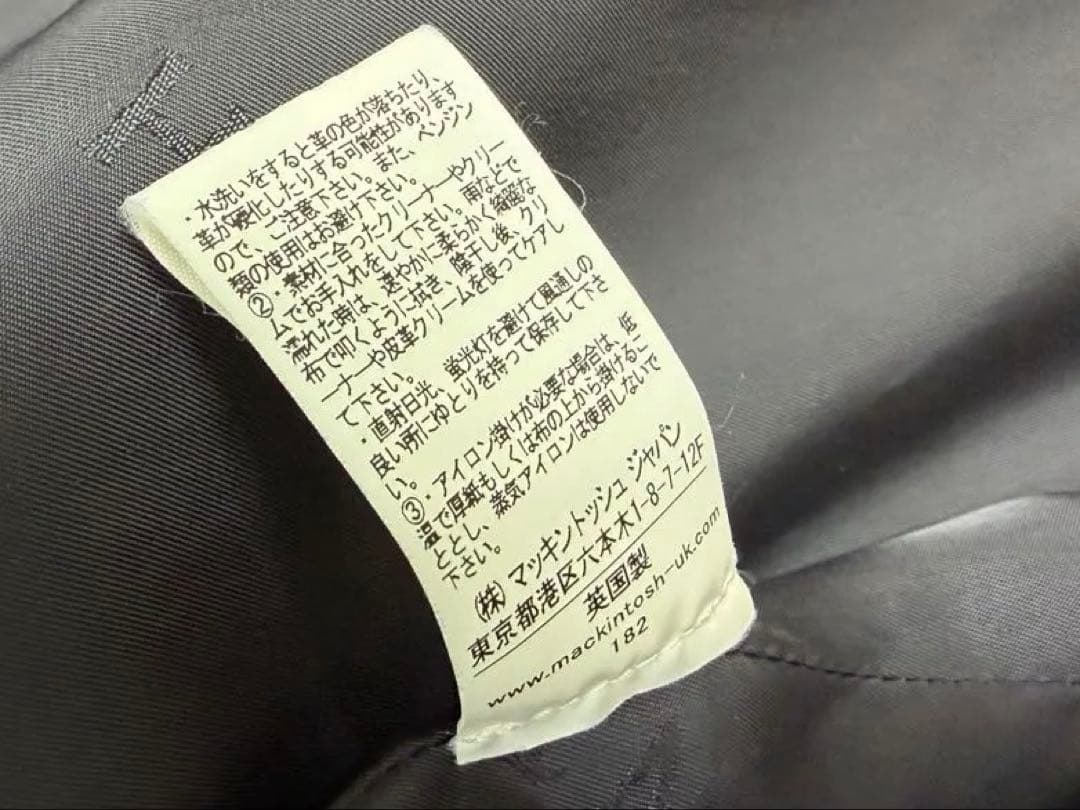 ・水洗いをすると革の色が落ちたり、
革が硬化したりする可能性があります
ので、ご注意下さい。また、ベンジン
類の使用はお避け下さい。
②・素材に合ったクリーナーやクリー
ムでお手入れをして下さい。雨などで
濡れた時は、速やかに柔らかく綺麗な
布で叩くように拭き、陰干し後、クリ
ーナーや皮革クリームを使ってケアし
て下さい。
・直射日光、蛍光灯を避けて風通しの
良い所にゆとりを持って保存して下さ
い。
③・アイロン掛けが必要な場合は、低
温で厚紙もしくは布の上から掛けるこ
ととし、蒸気アイロンは使用しないで
下さい。
(株) マッキントッシュ ジャパン
東京都港区六本木1-8-7-12F
英国製
www.mackintosh-uk.com
182